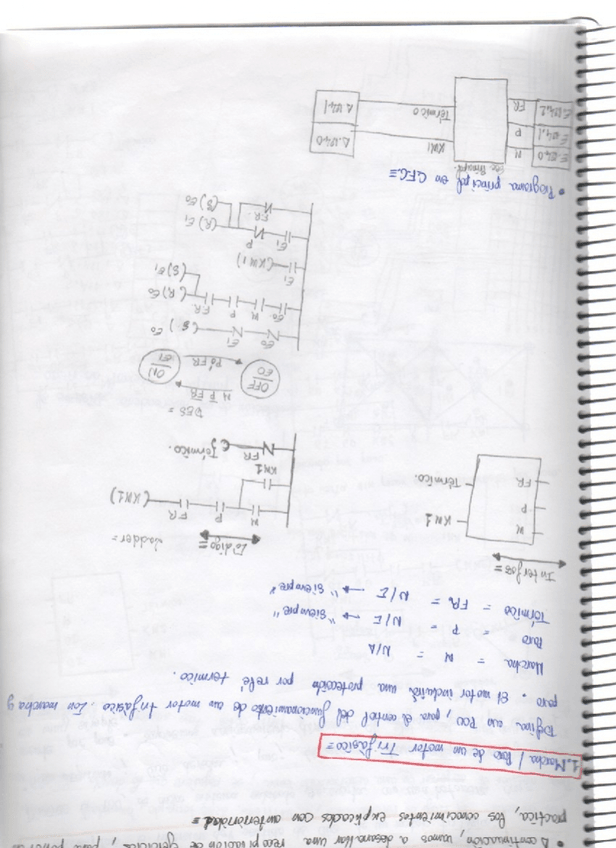 • A continuación, vamos a desarrollar una recopilación de ejercicios, para poner en
practica, los conocimientos explicados con anterioridad =
1. Marcha / Paro de un motor Trifásico =
Defina un POU, para el control del funcionamiento de un motor trifásico. Con marcha y
paro. El motor incluirá una protección por relé termico.
Marcha = M = N/A
Paro = P = N/E → "siempre"
Térmico = FR = N/E → "siempre"
Interfas =
M
P
FR
KM1
Térmico.
Código =
Ladder =
M P FR (KM1)
KM1
FR
Térmico.
DES =
OFF
E0
M P FR
P+FR
ON
E1
E0 E1 (S) E0
E0 M P FR (R) E0
(S) E1
E1 (KM1)
E1 P (R) E1
FR (S) E0
• Programa principal en CFC =
E.124.0 M
E.124.1 P
E.124.2 FR
KM1 A.124.0
Térmico A.124.1